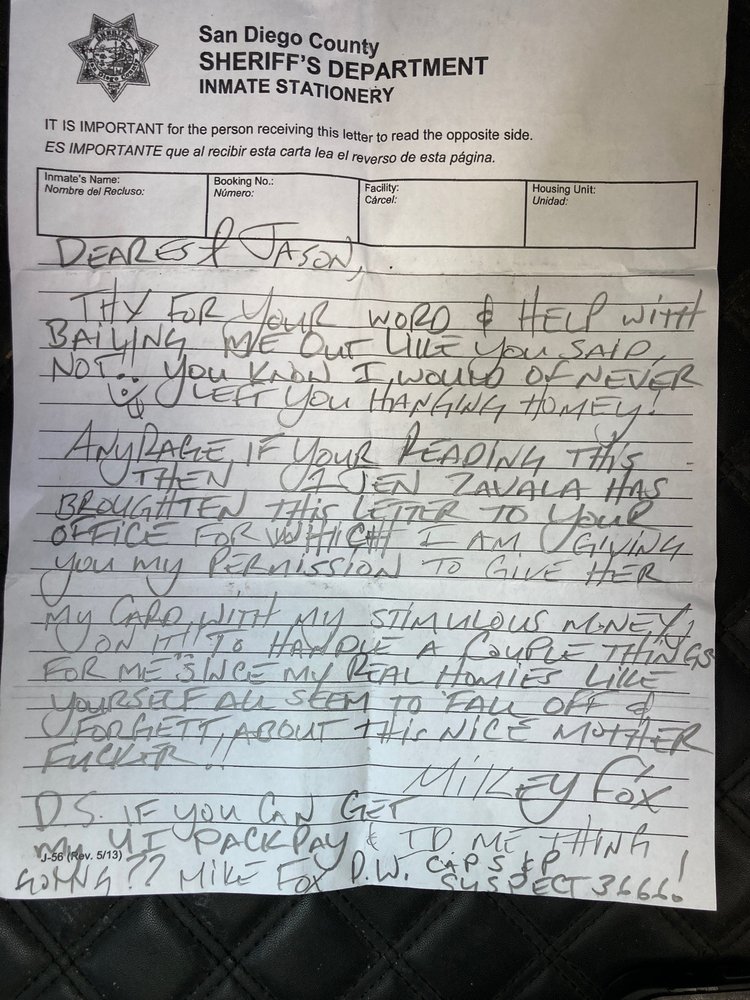 San Diego County
SHERIFF'S DEPARTMENT
INMATE STATIONERY
IT IS IMPORTANT for the person receiving this letter to read the opposite side.
ES IMPORTANTE que al recibir esta carta lea el reverso de esta página.
Inmate's Name: Booking No.: Facility: Housing Unit:
Nombre del Recluso: Número: Cárcel: Unidad:
DEAREST JASON,
THX FOR YOUR WORD & HELP WITH
BAILING ME OUT LIKE YOU SAID,
NOT!! YOU KNOW I WOULD OF NEVER
LEFT YOU HANGING HOMEY!
IF YOUR READING THIS
THEN JEN ZAVALA HAS
BROUGHTEN THIS LETTER TO YOUR
OFFICE FOR WHICH I AM GIVING
YOU MY PERMISSION TO GIVE HER
MY CARD WITH MY STIMULOUS MONEY
ON IT! TO HANDLE A COUPLE THINGS
FOR ME SINCE MY REAL HOMIES LIKE
YOURSELF ALL SEEM TO FALL OFF &
FORGETT ABOUT THIS NICE MOTHER
FUCKER!!
MIKEY FOX
P.S. IF YOU CAN GET
MY UI PACKPAY & ID ME THING
J-56 (Rev. 5/13)
GOING?? MIKE FOX P.W.
SUSPECT 3666!